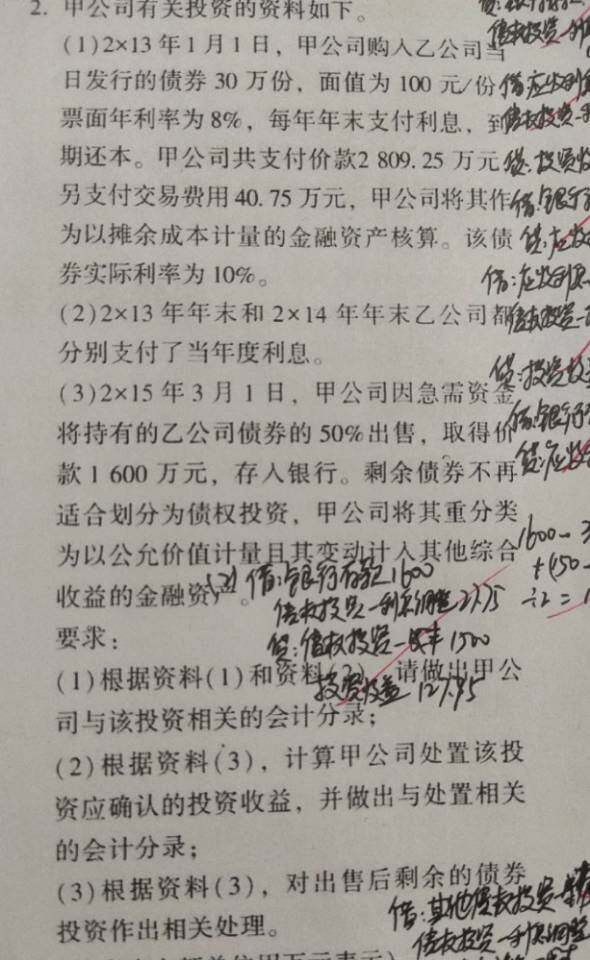 2. 甲公司有关投资的资料如下。
(1)2×13年1月1日，甲公司购入乙公司当
日发行的债券30万份，面值为100元/份
票面年利率为8%，每年年末支付利息，到
期还本。甲公司共支付价款2 809.25万元
另支付交易费用40.75万元，甲公司将其作
为以摊余成本计量的金融资产核算。该债
券实际利率为10%。
(2)2×13年年末和2×14年年末乙公司都
分别支付了当年度利息。
(3)2×15年3月1日，甲公司因急需资金
将持有的乙公司债券的50%出售，取得价
款1 600万元，存入银行。剩余债券不再
适合划分为债权投资，甲公司将其重分类
为以公允价值计量且其变动计入其他综合
收益的金融资产。
(2) 借:银行存款 1600
债权投资—利息调整 27.75
贷:债权投资—成本 1500
投资收益 127.75
要求：
(1)根据资料(1)和资料(2)，请做出甲公
司与该投资相关的会计分录；
(2)根据资料(3)，计算甲公司处置该投
资应确认的投资收益，并做出与处置相关
的会计分录；
(3)根据资料(3)，对出售后剩余的债券
投资作出相关处理。
借:其他债权投资
债权投资—利息调整
债权投资—利
借:应收利
债权投资
贷:投资收
借:银行
贷:应收
借:应收利息
债权投资
贷:投资收
借:银行
贷:应收
1600-
+(50-
÷2=